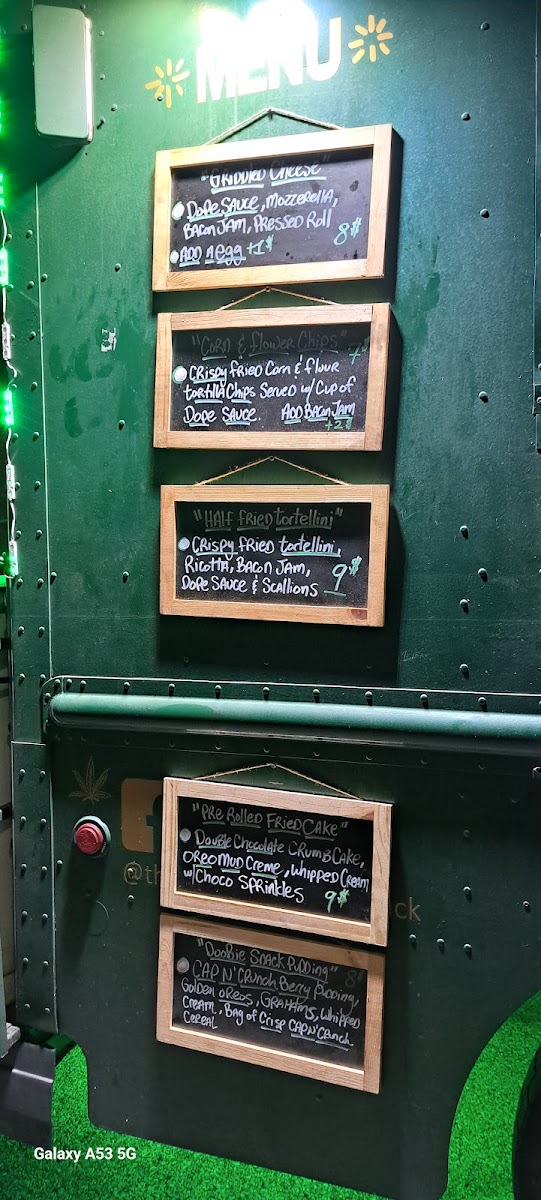 MENU
"GRIDDLED CHEESE"
DOPE SAUCE, MOZZERELLA,
BACON JAM, PRESSED ROLL
8$
ADD AN EGG +1$
"CORN & FLOWER CHIPS"
7$
CRISPY FRIED CORN & FLOUR
TORTILLA CHIPS SERVED W/ CUP OF
DOPE SAUCE. ADD BACON JAM
+2$
"HALF FRIED TORTELLINI"
CRISPY FRIED TORTELLINI,
RICOTTA, BACON JAM,
DOPE SAUCE & SCALLIONS
9$
"PRE ROLLED FRIED CAKE"
DOUBLE CHOCOLATE CRUMB CAKE,
OREO MUD CREME, WHIPPED CREAM
W/ CHOCO SPRINKLES
9$
@th
ck
"DOOBIE SNACK PUDDING" 8$
CAP N' CRUNCH BERRY PUDDING,
GOLDEN OREOS, GRAHAMS, WHIPPED
CREAM, BAG OF CRISP CAP N' CRUNCH
CEREAL
Galaxy A53 5G